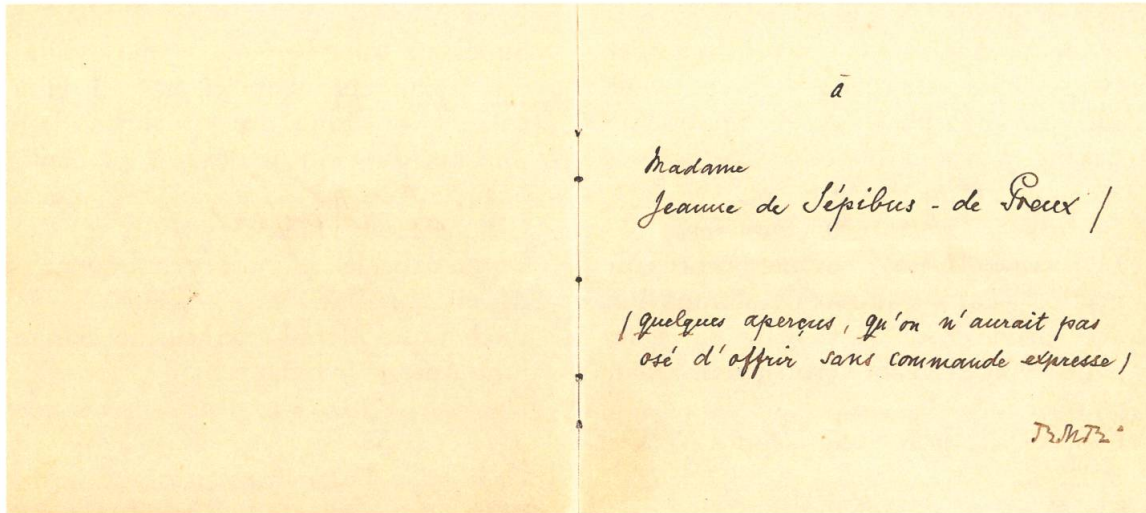 à
Madame
Jeanne de Sépibus - de Preux /
/ quelques aperçus, qu'on n'aurait pas
osé d'offrir sans commande expresse /
RMR.